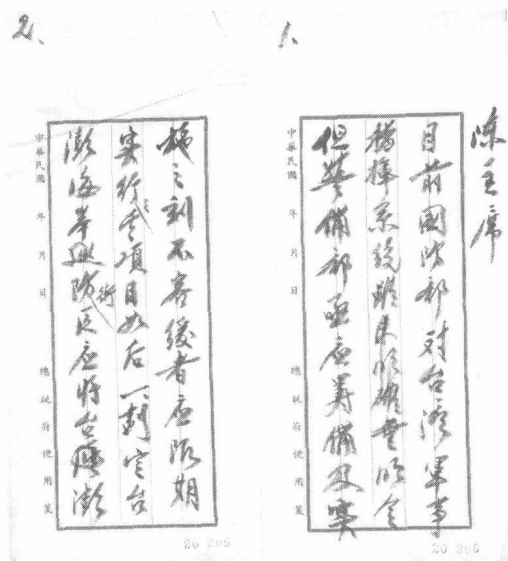 1、
陳主席
目前國防部對台灣軍事
指揮系統雖未明確無明令
但警備部亟應籌備及實
中華民國 年 月 日 總統府便用箋
20 205
2、
施之刻不容緩者應限期
實行其項目如后一劃定台
澎海岸與防衛區應將台灣澎
中華民國 年 月 日 總統府便用箋
20 205